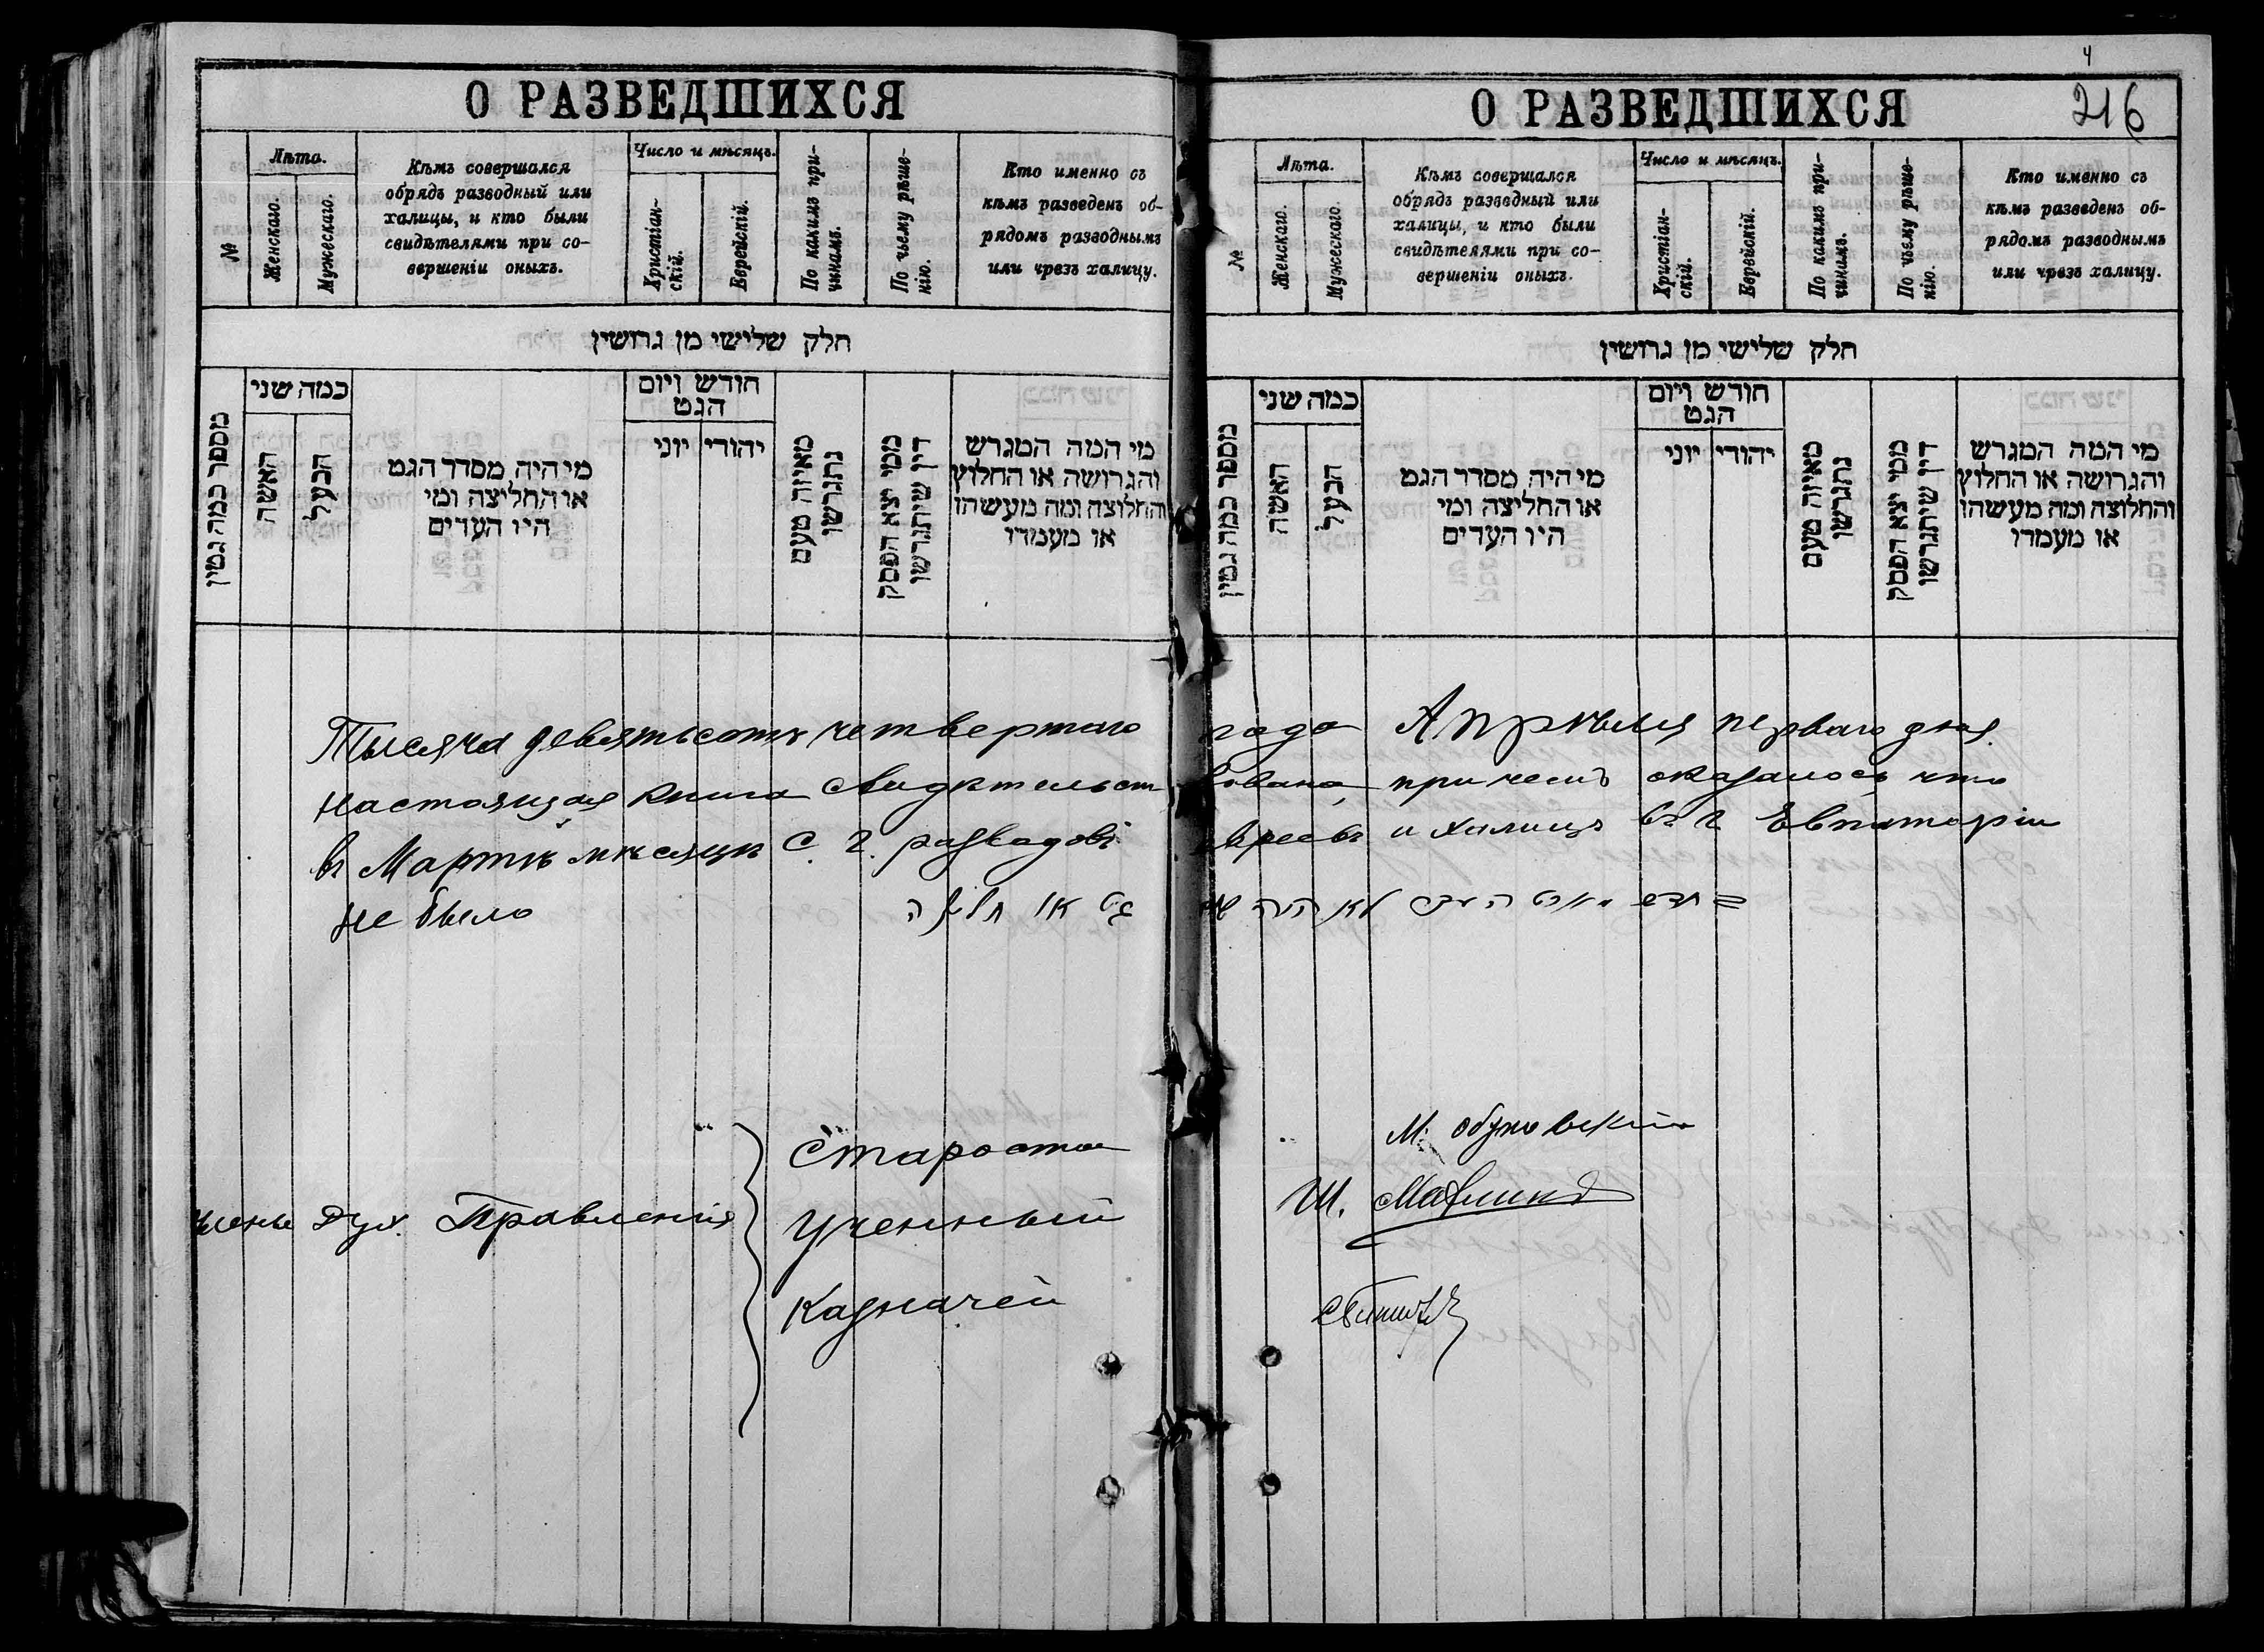 О РАЗВЕДШИХСЯ
№
Лѣта.
Женскаго.
Мужескаго.
Кѣмъ совершался
обрядъ разводный или
халицы, и кто были
свидѣтелями при со-
вершеніи оныхъ.
Число и мѣсяцъ.
Христіан-
скій.
Еврейскій.
По какимъ при-
чинамъ.
По чьему рѣше-
нію.
Кто именно съ
кѣмъ разведенъ об-
рядомъ разводнымъ
или чрезъ халицу.
חלק שלישי מן גרושין
מספר כמה גטין
כמה שני
האשה
הבעל
מי היה מסדר הגט
או החליצה ומי
היו העדים
חודש ויום
הגט
יהודי
יוני
מאיזה טעם
נתגרשו
ממי יצא הפסק
דין שיתגרשו
מי המה המגרש
והגרושה או החלוץ
והחלוצה ומה מעשהו
או מעמדו
4
216
О РАЗВЕДШИХСЯ
№
Лѣта.
Женскаго.
Мужескаго.
Кѣмъ совершался
обрядъ разводный или
халицы, и кто были
свидѣтелями при со-
вершеніи оныхъ.
Число и мѣсяцъ.
Христіан-
скій.
Еврейскій.
По какимъ при-
чинамъ.
По чьему рѣше-
нію.
Кто именно съ
кѣмъ разведенъ об-
рядомъ разводнымъ
или чрезъ халицу.
חלק שלישי מן גרושין
מספר כמה גטין
כמה שני
האשה
הבעל
מי היה מסדר הגט
או החליצה ומי
היו העדים
חודש ויום
הגט
יהודי
יוני
מאיזה טעם
נתגרשו
ממי יצא הפסק
דין שיתגרשו
מי המה המגרש
והגרושה או החלוץ
והחלוצה ומה מעשהו
או מעמדו
Тысяча девятьсотъ четвертаго года Апрѣля перваго дня
настоящая книга свидѣтельствована, при чемъ оказалось что
въ Мартѣ мѣсяцѣ с. г. разводовъ евреевъ и халицъ въ г. Евпаторіи
не было
לא היה
גט או חליצה
Члены Дух. Правленія
Староста М. Обуховскій
Ученный Ш.
Казначей